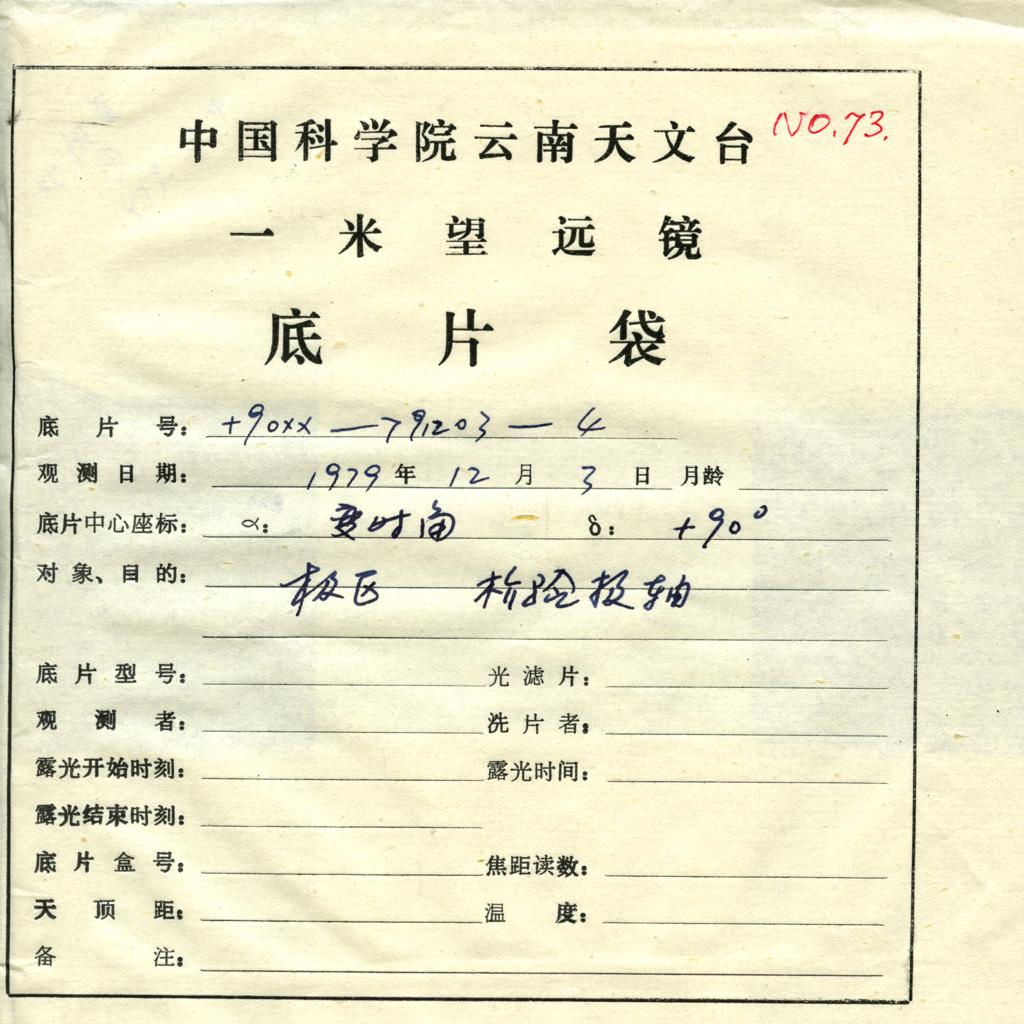 中国科学院云南天文台 NO.73.
一米望远镜
底片袋
底片号： +90xx —791203 — 4
观测日期： 1979年 12月 3日 月龄
底片中心座标： α： 变时角 δ： +90°
对象、目的： 极区 检验极轴
底片型号： 光滤片：
观测者： 洗片者：
露光开始时刻： 露光时间：
露光结束时刻：
底片盒号： 焦距读数：
天顶距： 温度：
备注：